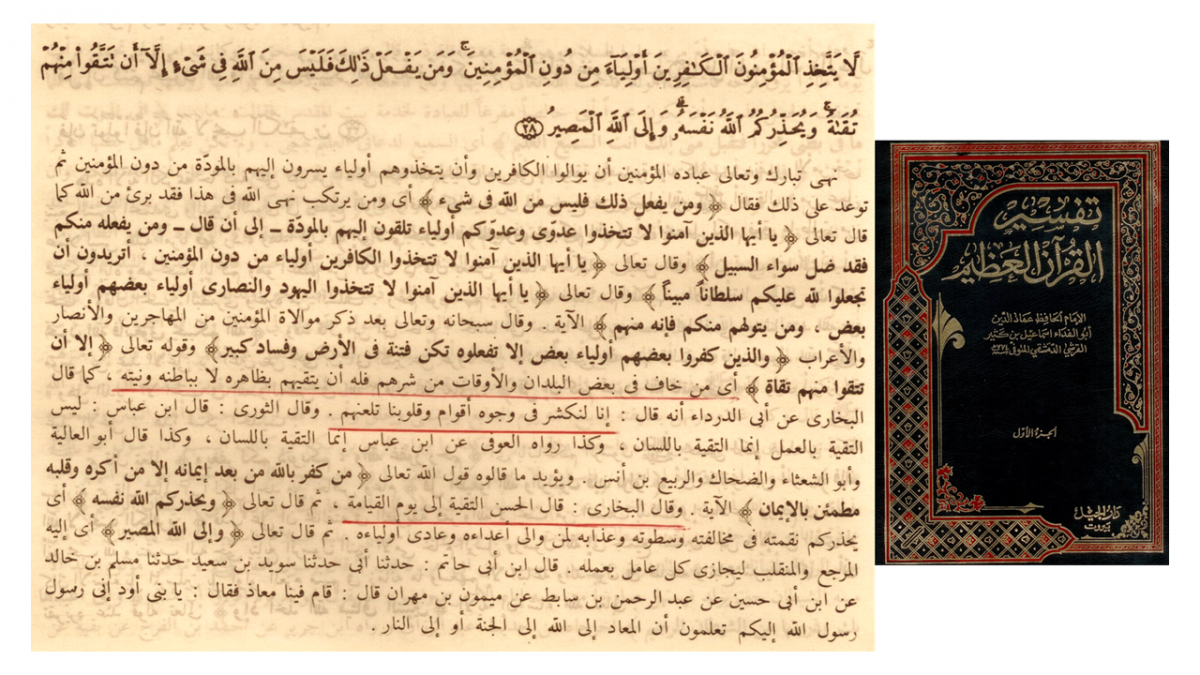 لَّا يَتَّخِذِ ٱلْمُؤْمِنُونَ ٱلْكَـٰفِرِينَ أَوْلِيَآءَ مِن دُونِ ٱلْمُؤْمِنِينَ ۖ وَمَن يَفْعَلْ ذَٰلِكَ فَلَيْسَ مِنَ ٱللَّهِ فِى شَىْءٍ إِلَّآ أَن تَتَّقُوا۟ مِنْهُمْ
تُقَىٰةً ۗ وَيُحَذِّرُكُمُ ٱللَّهُ نَفْسَهُۥ ۗ وَإِلَى ٱللَّهِ ٱلْمَصِيرُ ﴿٢٨﴾
نهى تبارك وتعالى عباده المؤمنين أن يوالوا الكافرين وأن يتخذوهم أولياء يسرون إليهم بالمودّة من دون المؤمنين ثم
توعد على ذلك فقال ﴿ ومن يفعل ذلك فليس من الله فى شىء ﴾ أى ومن يرتكب نهى الله فى هذا فقد برئ من الله كما
قال تعالى ﴿ يا أيها الذين آمنوا لا تتخذوا عدوّى وعدوّكم أولياء تلقون إليهم بالمودّة ــ إلى أن قال ــ ومن يفعله منكم
فقد ضل سواء السبيل ﴾ وقال تعالى ﴿ يا أيها الذين آمنوا لا تتخذوا الكافرين أولياء من دون المؤمنين ، أتريدون أن
تجعلوا لله عليكم سلطاناً مبيناً ﴾ وقال تعالى ﴿ يا أيها الذين آمنوا لا تتخذوا اليهود والنصارى أولياء بعضهم أولياء
بعض ، ومن يتولهم منكم فإنه منهم ﴾ الآية . وقال سبحانه وتعالى بعد ذكر موالاة المؤمنين من المهاجرين والأنصار
والأعراب ﴿ والذين كفروا بعضهم أولياء بعض إلا تفعلوه تكن فتنة فى الأرض وفساد كبير ﴾ وقوله تعالى ﴿ إلا أن
تتقوا منهم تقاة ﴾ أى من خاف فى بعض البلدان والأوقات من شرهم فله أن يتقيهم بظاهره لا بباطنه ونيته ، كما قال
البخارى عن أبى الدرداء أنه قال : إنا لنكشر فى وجوه أقوام وقلوبنا تلعنهم . وقال الثورى : قال ابن عباس : ليس
التقية بالعمل إنما التقية باللسان ، وكذا رواه العوفى عن ابن عباس إنما التقية باللسان ، وكذا قال أبو العالية
وأبو الشعثاء والضحاك والربيع بن أنس . ويؤيد ما قالوه قول الله تعالى ﴿ من كفر بالله من بعد إيمانه إلا من أكره وقلبه
مطمئن بالإيمان ﴾ الآية . وقال البخارى : قال الحسن التقية إلى يوم القيامة ، ثم قال تعالى ﴿ ويحذركم الله نفسه ﴾ أى
يحذركم نقمته فى مخالفته وسطوته وعذابه لمن والى أعداءه وعادى أولياءه . ثم قال تعالى ﴿ وإلى الله المصير ﴾ أى إليه
المرجع والمنقلب ليجازى كل عامل بعمله . قال ابن أبى حاتم : حدثنا أبى حدثنا سويد بن سعيد حدثنا مسلم بن خالد
عن ابن أبى حسين عن عبد الرحمن بن سابط عن ميمون بن مهران قال : قام فينا معاذ فقال : يا بنى أود إنى رسول
رسول الله إليكم تعلمون أن المعاد إلى الله إلى الجنة أو إلى النار .
تفسير
القرآن العظيم
الإمام الحافظ عماد الدين
أبو الفداء اسماعيل بن كثير
القرشي الدمشقي المتوفى
الجزء الأول
دار الجيل
بيروت